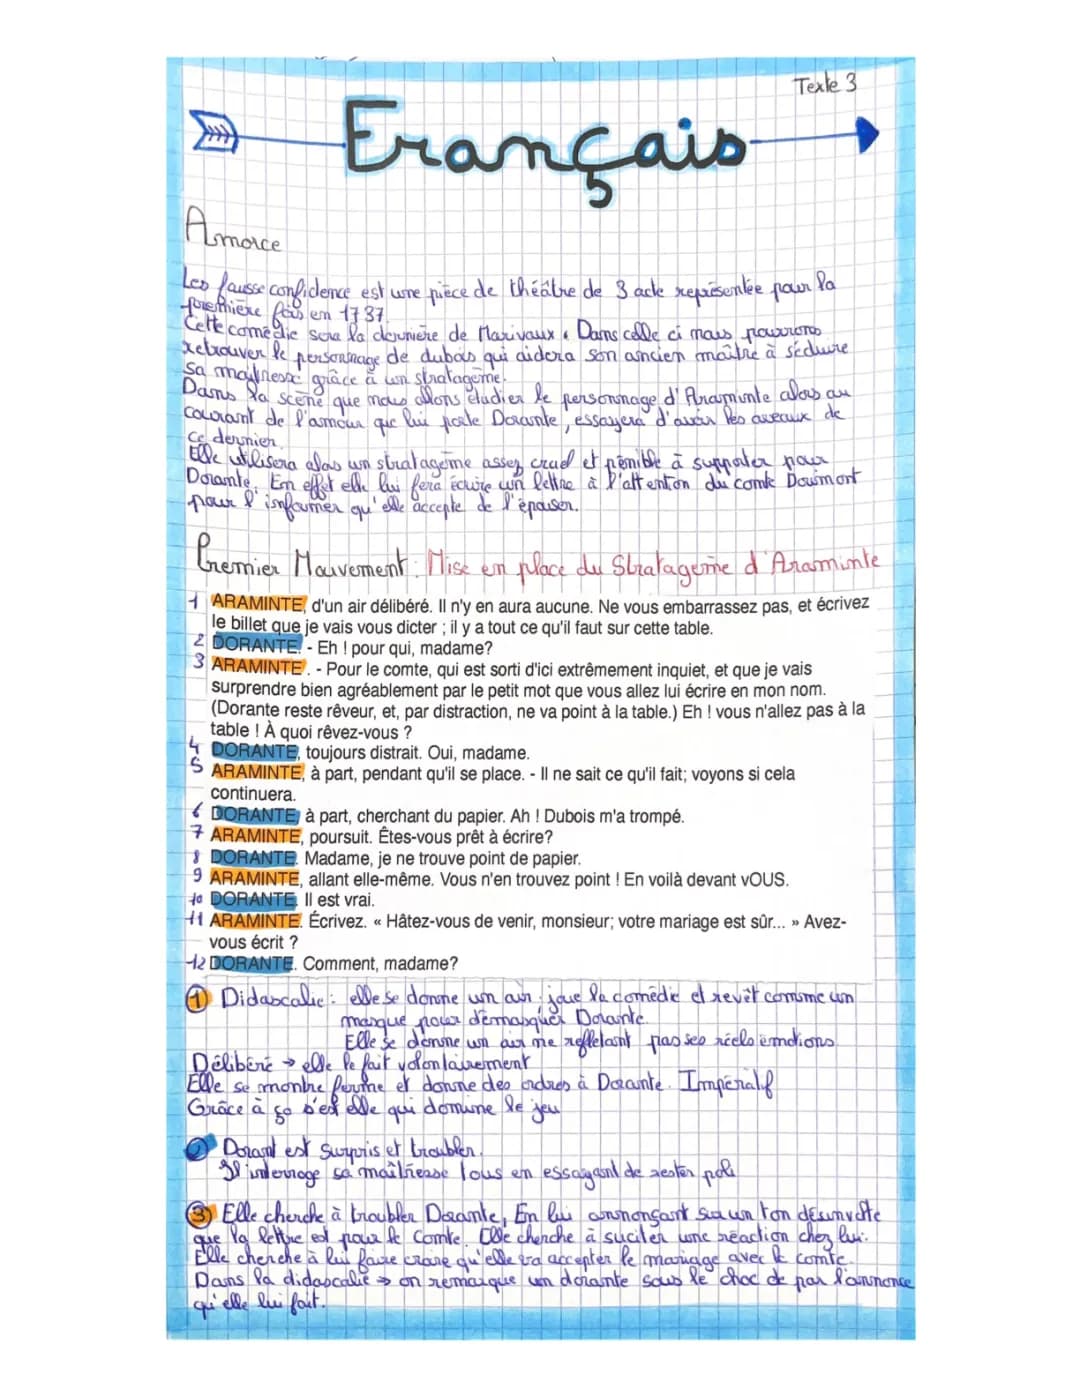 Texte 3
Français
Amorce
Les fausse confidence est une pièce de théâtre de 3 acte représentée pour la
première fois en 1737.
Cette comédie sera la dernière de Marivaux. Dans celle ci nous pourrons
retrouver le personnage de dubois qui aidera son ancien maître à séduire
sa maîtresse grâce à un stratagème.
Dans la scène que nous allons étudier le personnage d'Araminte alors au
courant de l'amour que lui porte Dorante, essayera d'avoir les aveaux de
ce dernier.
Elle utilisera alors un stratagème assez cruel et pénible à supporter pour
Dorante. En effet elle lui fera écrire un lettre à l'attention du comte Dorimont
pour l'informer qu'elle accepte de l'épouser.
Premier Mouvement : Mise en place du Stratagème d'Araminte
1 ARAMINTE, d'un air délibéré. Il n'y en aura aucune. Ne vous embarrassez pas, et écrivez
le billet que je vais vous dicter ; il y a tout ce qu'il faut sur cette table.
2 DORANTE. - Eh ! pour qui, madame?
3 ARAMINTE . - Pour le comte, qui est sorti d'ici extrêmement inquiet, et que je vais
surprendre bien agréablement par le petit mot que vous allez lui écrire en mon nom.
(Dorante reste rêveur, et, par distraction, ne va point à la table.) Eh ! vous n'allez pas à la
table ! À quoi rêvez-vous ?
4 DORANTE, toujours distrait. Oui, madame.
5 ARAMINTE, à part, pendant qu'il se place. - Il ne sait ce qu'il fait; voyons si cela
continuera.
6 DORANTE, à part, cherchant du papier. Ah ! Dubois m'a trompé.
7 ARAMINTE, poursuit. Êtes-vous prêt à écrire?
8 DORANTE. Madame, je ne trouve point de papier.
9 ARAMINTE, allant elle-même. Vous n'en trouvez point ! En voilà devant vOUS.
10 DORANTE. Il est vrai.
11 ARAMINTE. Écrivez. « Hâtez-vous de venir, monsieur; votre mariage est sûr... » Avez-
vous écrit ?
12 DORANTE. Comment, madame?
1 Didascalie : elle se donne un air, joue la comédie et revêt comme un
masque pour démasquer Dorante.
Elle se donne un air ne reffletant pas ses réels émotions.
Délibéré → elle le fait volontairement
Elle se montre ferme et donne des ordres à Dorante. Impératif
Grâce à ça c'est elle qui domine le jeu
2 Dorant est surpris et troubler.
Il interroge sa maîtresse tous en essayant de rester poli
3 Elle cherche à troubler Dorante, En lui annonçant sur un ton désinvolte
que la lettre est pour le Comte. Elle cherche à suciter une réaction chez lui.
Elle cherche à lui faire croire qu'elle va accepter le mariage avec le comte.
Dans la didascalie → on remarque un dorante sous le choc de par l'annonce
qu'elle lui fait.